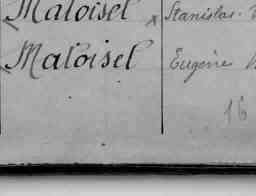 Matoisel Stanislas
Matoisel Eugène
16